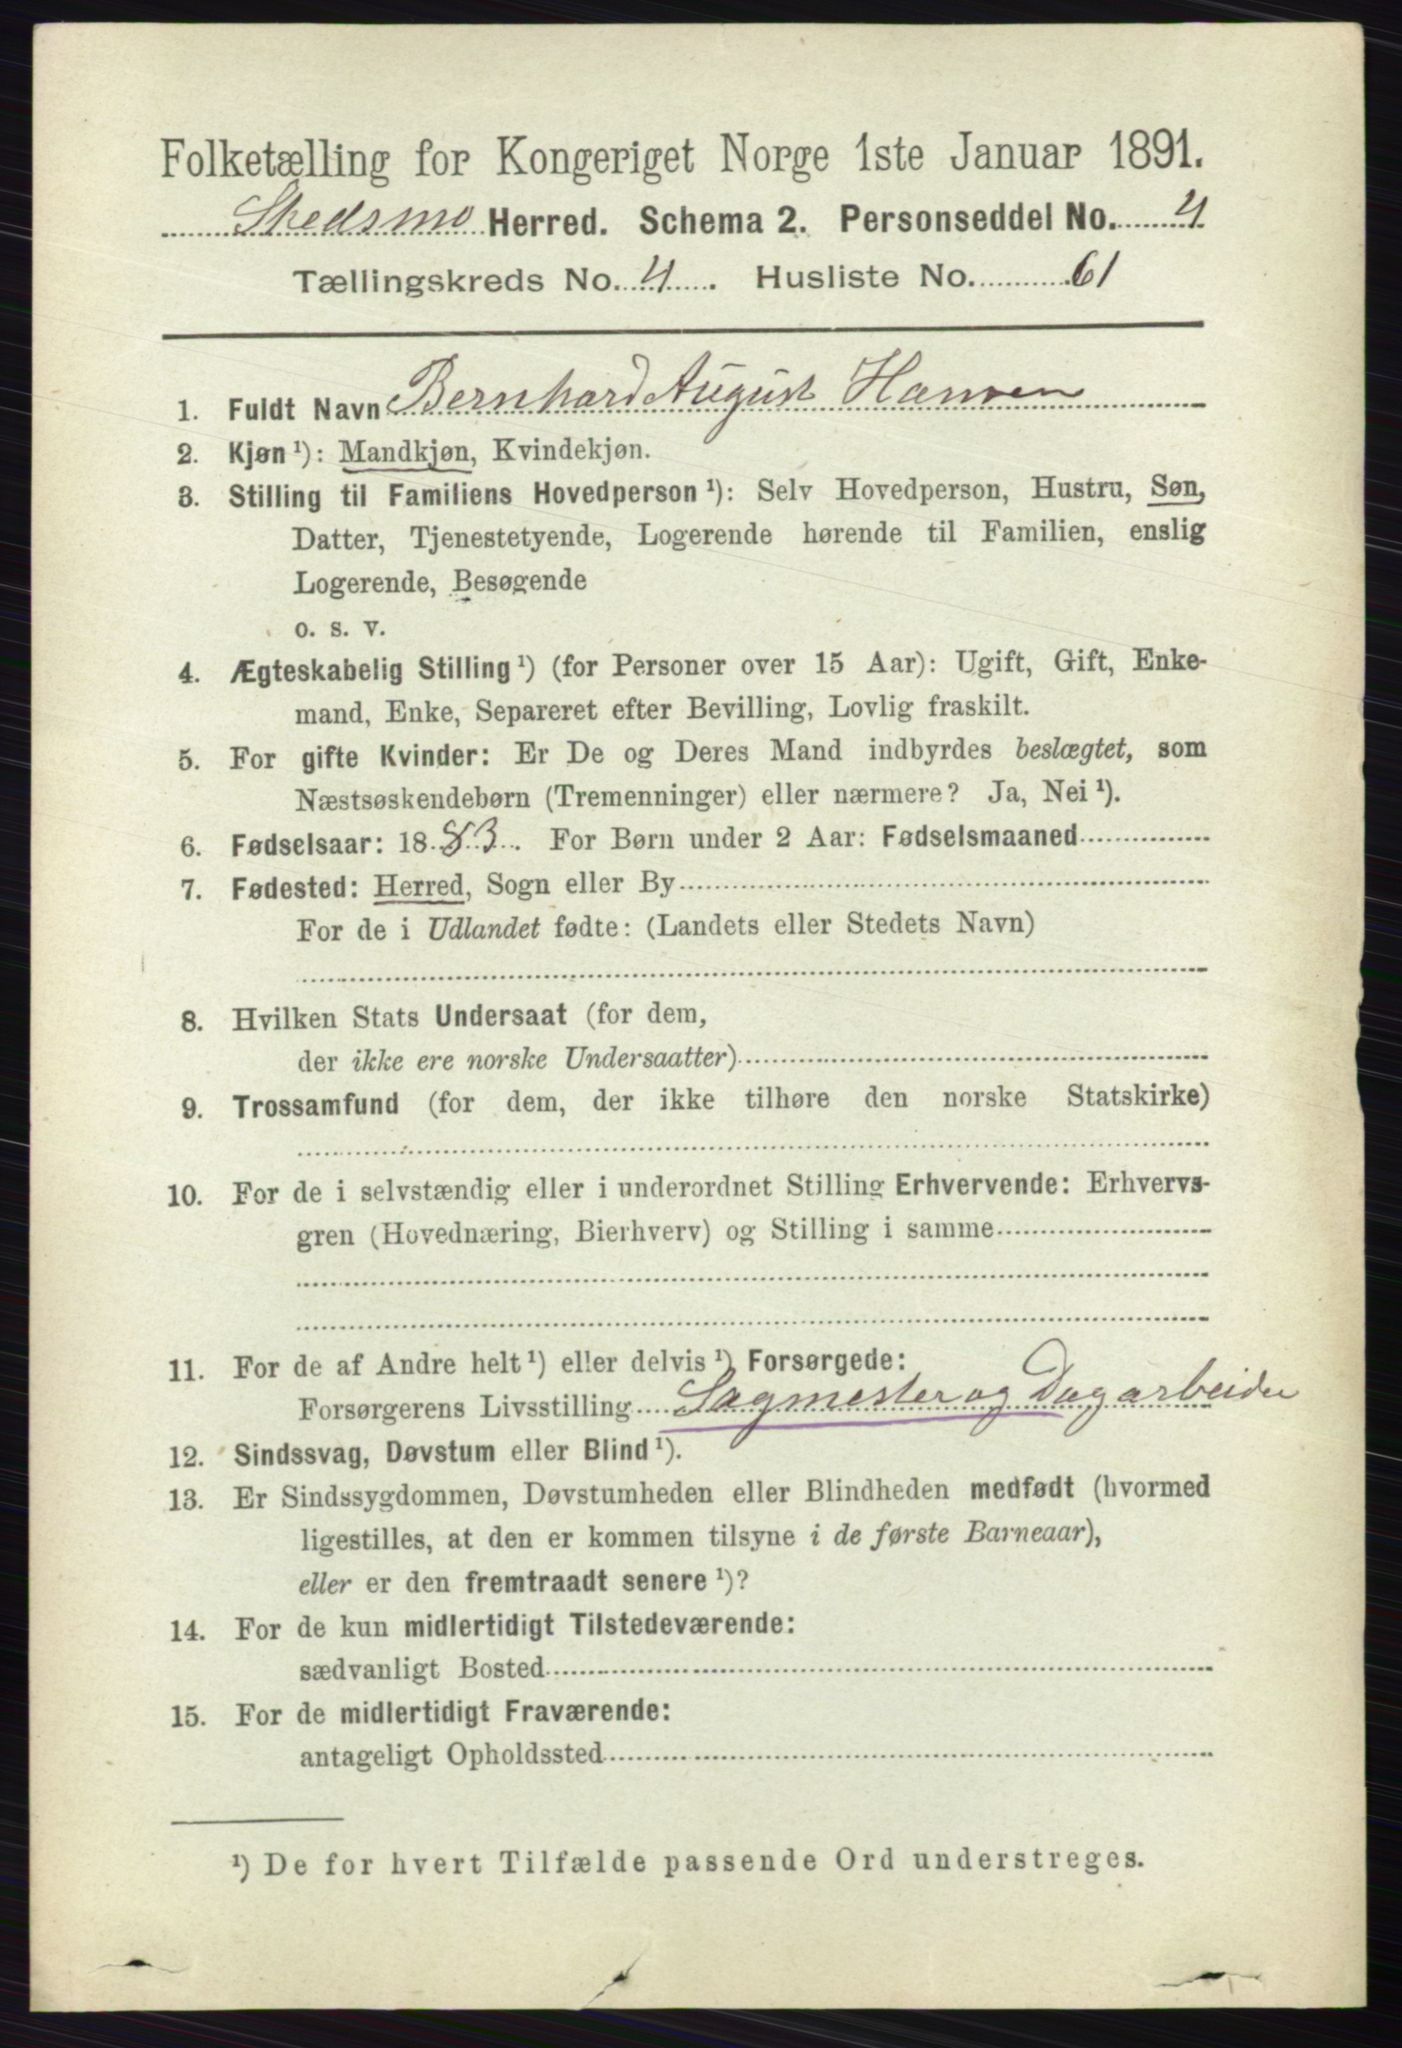 Folketælling for Kongeriget Norge 1ste Januar 1891.
Skedsmo Herred. Schema 2. Personseddel No. 4
Tællingskreds No. 4. Husliste No. 61
1. Fuldt Navn Bernhard August Hansen
2. Kjøn ¹): Mandkjøn, Kvindekjøn.
3. Stilling til Familiens Hovedperson ¹): Selv Hovedperson, Hustru, Søn,
Datter, Tjenestetyende, Logerende hørende til Familien, enslig
Logerende, Besøgende
o. s. v.
4. Ægteskabelig Stilling ¹) (for Personer over 15 Aar): Ugift, Gift, Enke-
mand, Enke, Separeret efter Bevilling, Lovlig fraskilt.
5. For gifte Kvinder: Er De og Deres Mand indbyrdes beslægtet, som
Næstsøskendebørn (Tremenninger) eller nærmere? Ja, Nei ¹).
6. Fødselsaar: 1883. For Børn under 2 Aar: Fødselsmaaned
7. Fødested: Herred, Sogn eller By
For de i Udlandet fødte: (Landets eller Stedets Navn)
8. Hvilken Stats Undersaat (for dem,
der ikke ere norske Undersaatter)
9. Trossamfund (for dem, der ikke tilhøre den norske Statskirke)
10. For de i selvstændig eller i underordnet Stilling Erhvervende: Erhvervs-
gren (Hovednæring, Bierhverv) og Stilling i samme
11. For de af Andre helt ¹) eller delvis ¹) Forsørgede:
Forsørgerens Livsstilling Sagmester og Dagarbeider
12. Sindssvag, Døvstum eller Blind ¹).
13. Er Sindssygdommen, Døvstumheden eller Blindheden medfødt (hvormed
ligestilles, at den er kommen tilsyne i de første Barneaar),
eller er den fremtraadt senere ¹)?
14. For de kun midlertidigt Tilstedeværende:
sædvanligt Bosted
15. For de midlertidigt Fraværende:
antageligt Opholdssted
¹) De for hvert Tilfælde passende Ord understreges.